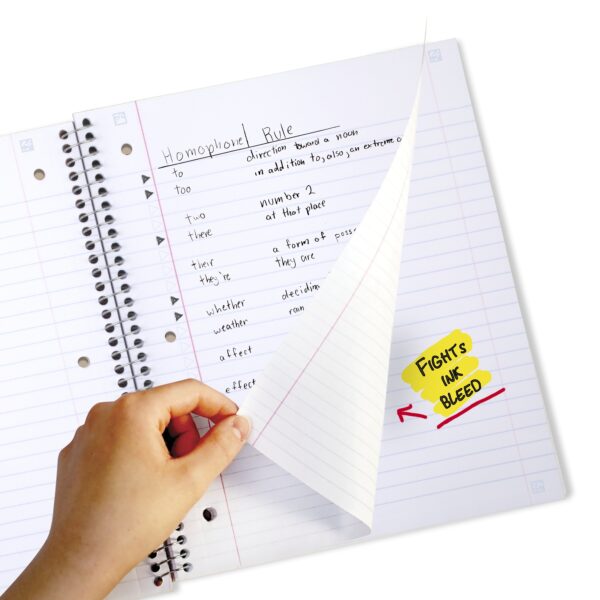 Homophone | Rule
to direction toward a noun
too in addition to, also, an extreme
two number 2
there at that place
their a form of poss
they're they are
whether decidin
weather
affect
effect
FIGHTS
INK
BLEED